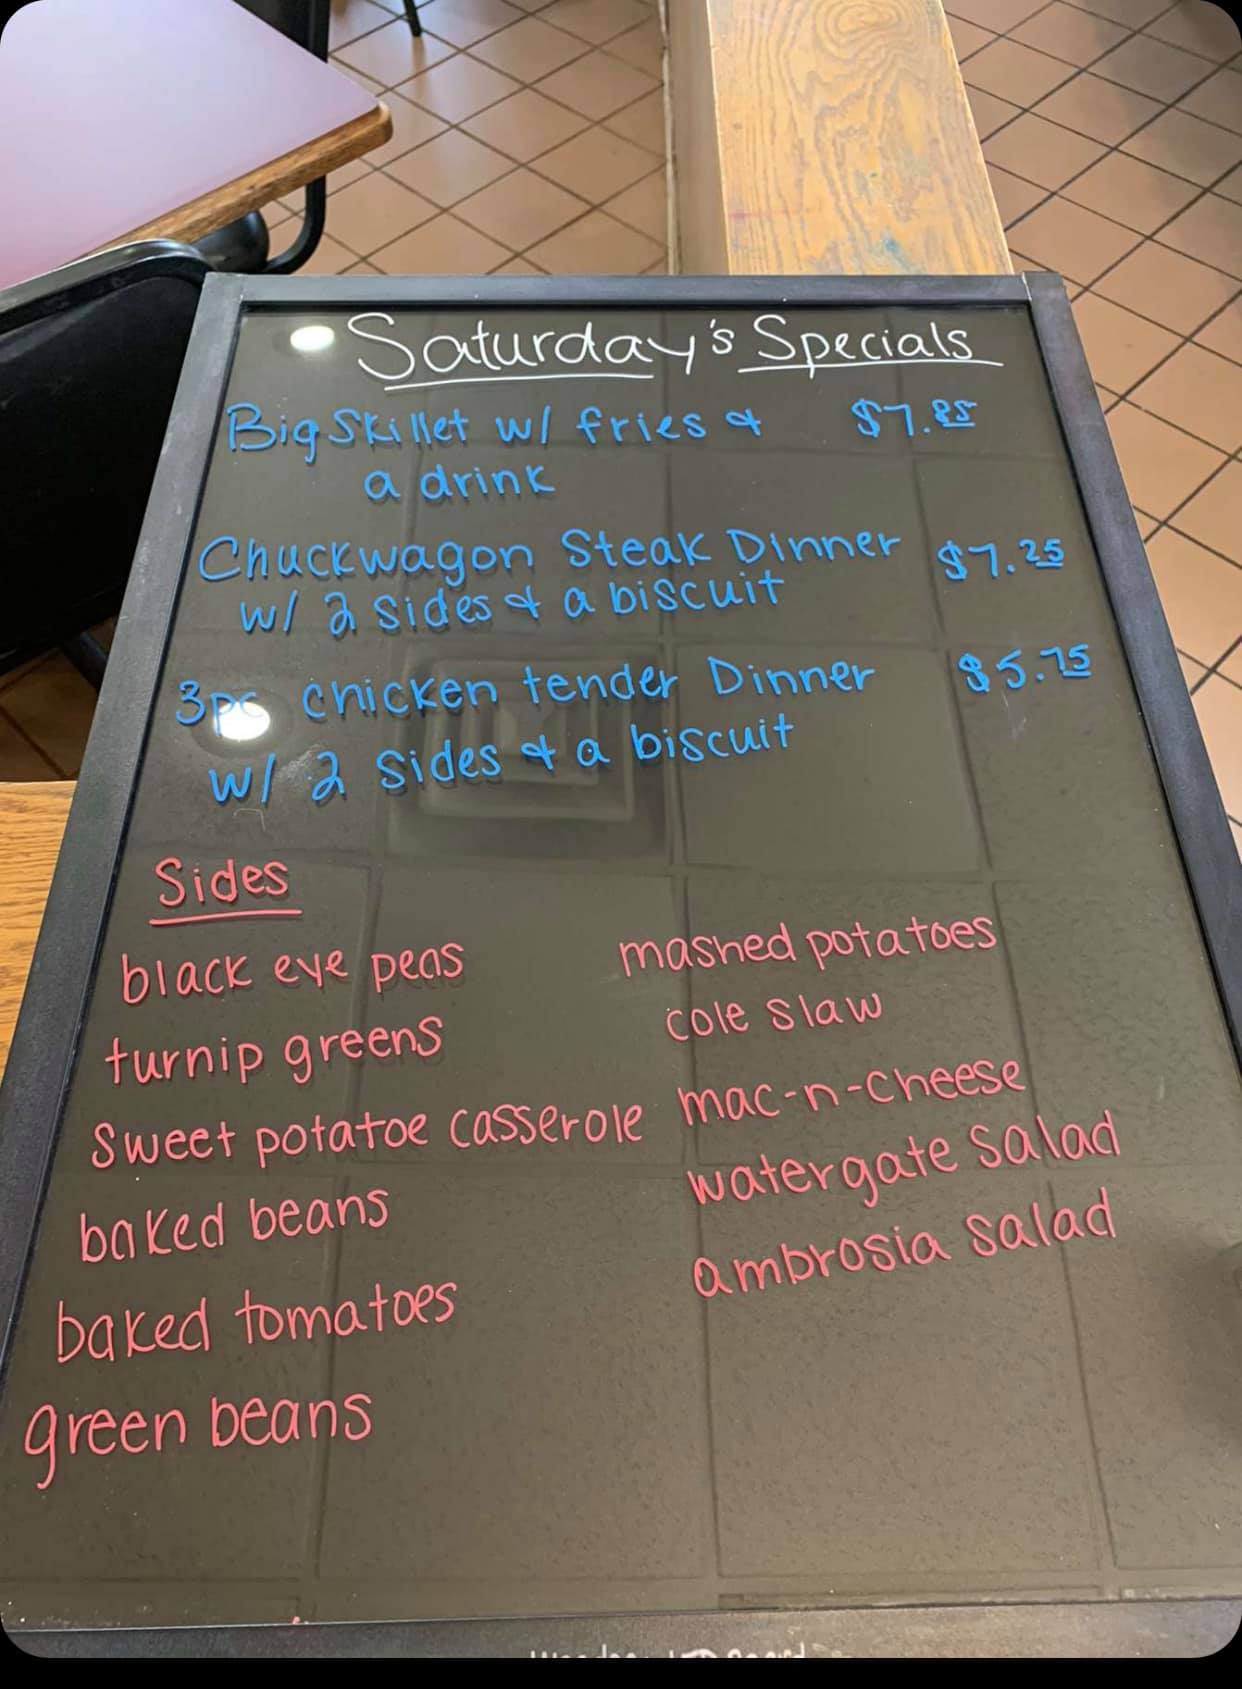 Saturday's Specials
Big Skillet w/ fries & $7.85
a drink
Chuckwagon Steak Dinner $7.25
w/ 2 sides & a biscuit
3pc chicken tender Dinner $5.75
w/ 2 sides & a biscuit
Sides
black eye peas
turnip greens
sweet potatoe casserole
baked beans
baked tomatoes
green beans
mashed potatoes
cole slaw
mac-n-cheese
watergate salad
ambrosia salad